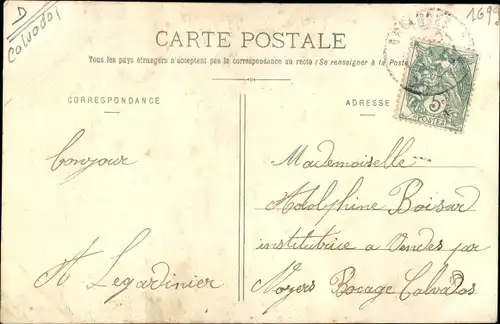 D
Calvados
1699
CARTE POSTALE
Tous les pays étrangers n'acceptent pas la correspondance au recto (Se renseigner à la Poste)
CORRESPONDANCE
ADRESSE
5c
POSTES
bonjour
A Legardinier
Mademoiselle
Adolphine Boisard
institutrice a Vendes par
Noyers Bocage Calvados